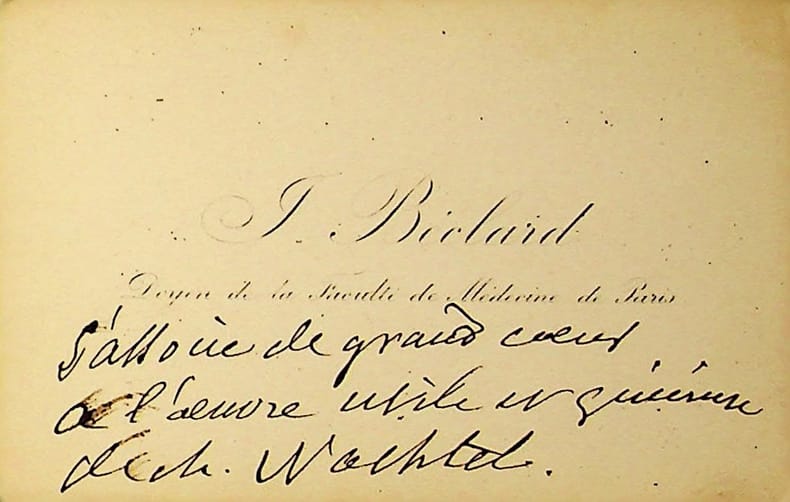 J. Béclard
Doyen de la Faculté de Médecine de Paris
s'associe de grand cœur
à l'œuvre utile et généreuse
de M. Nachtel.